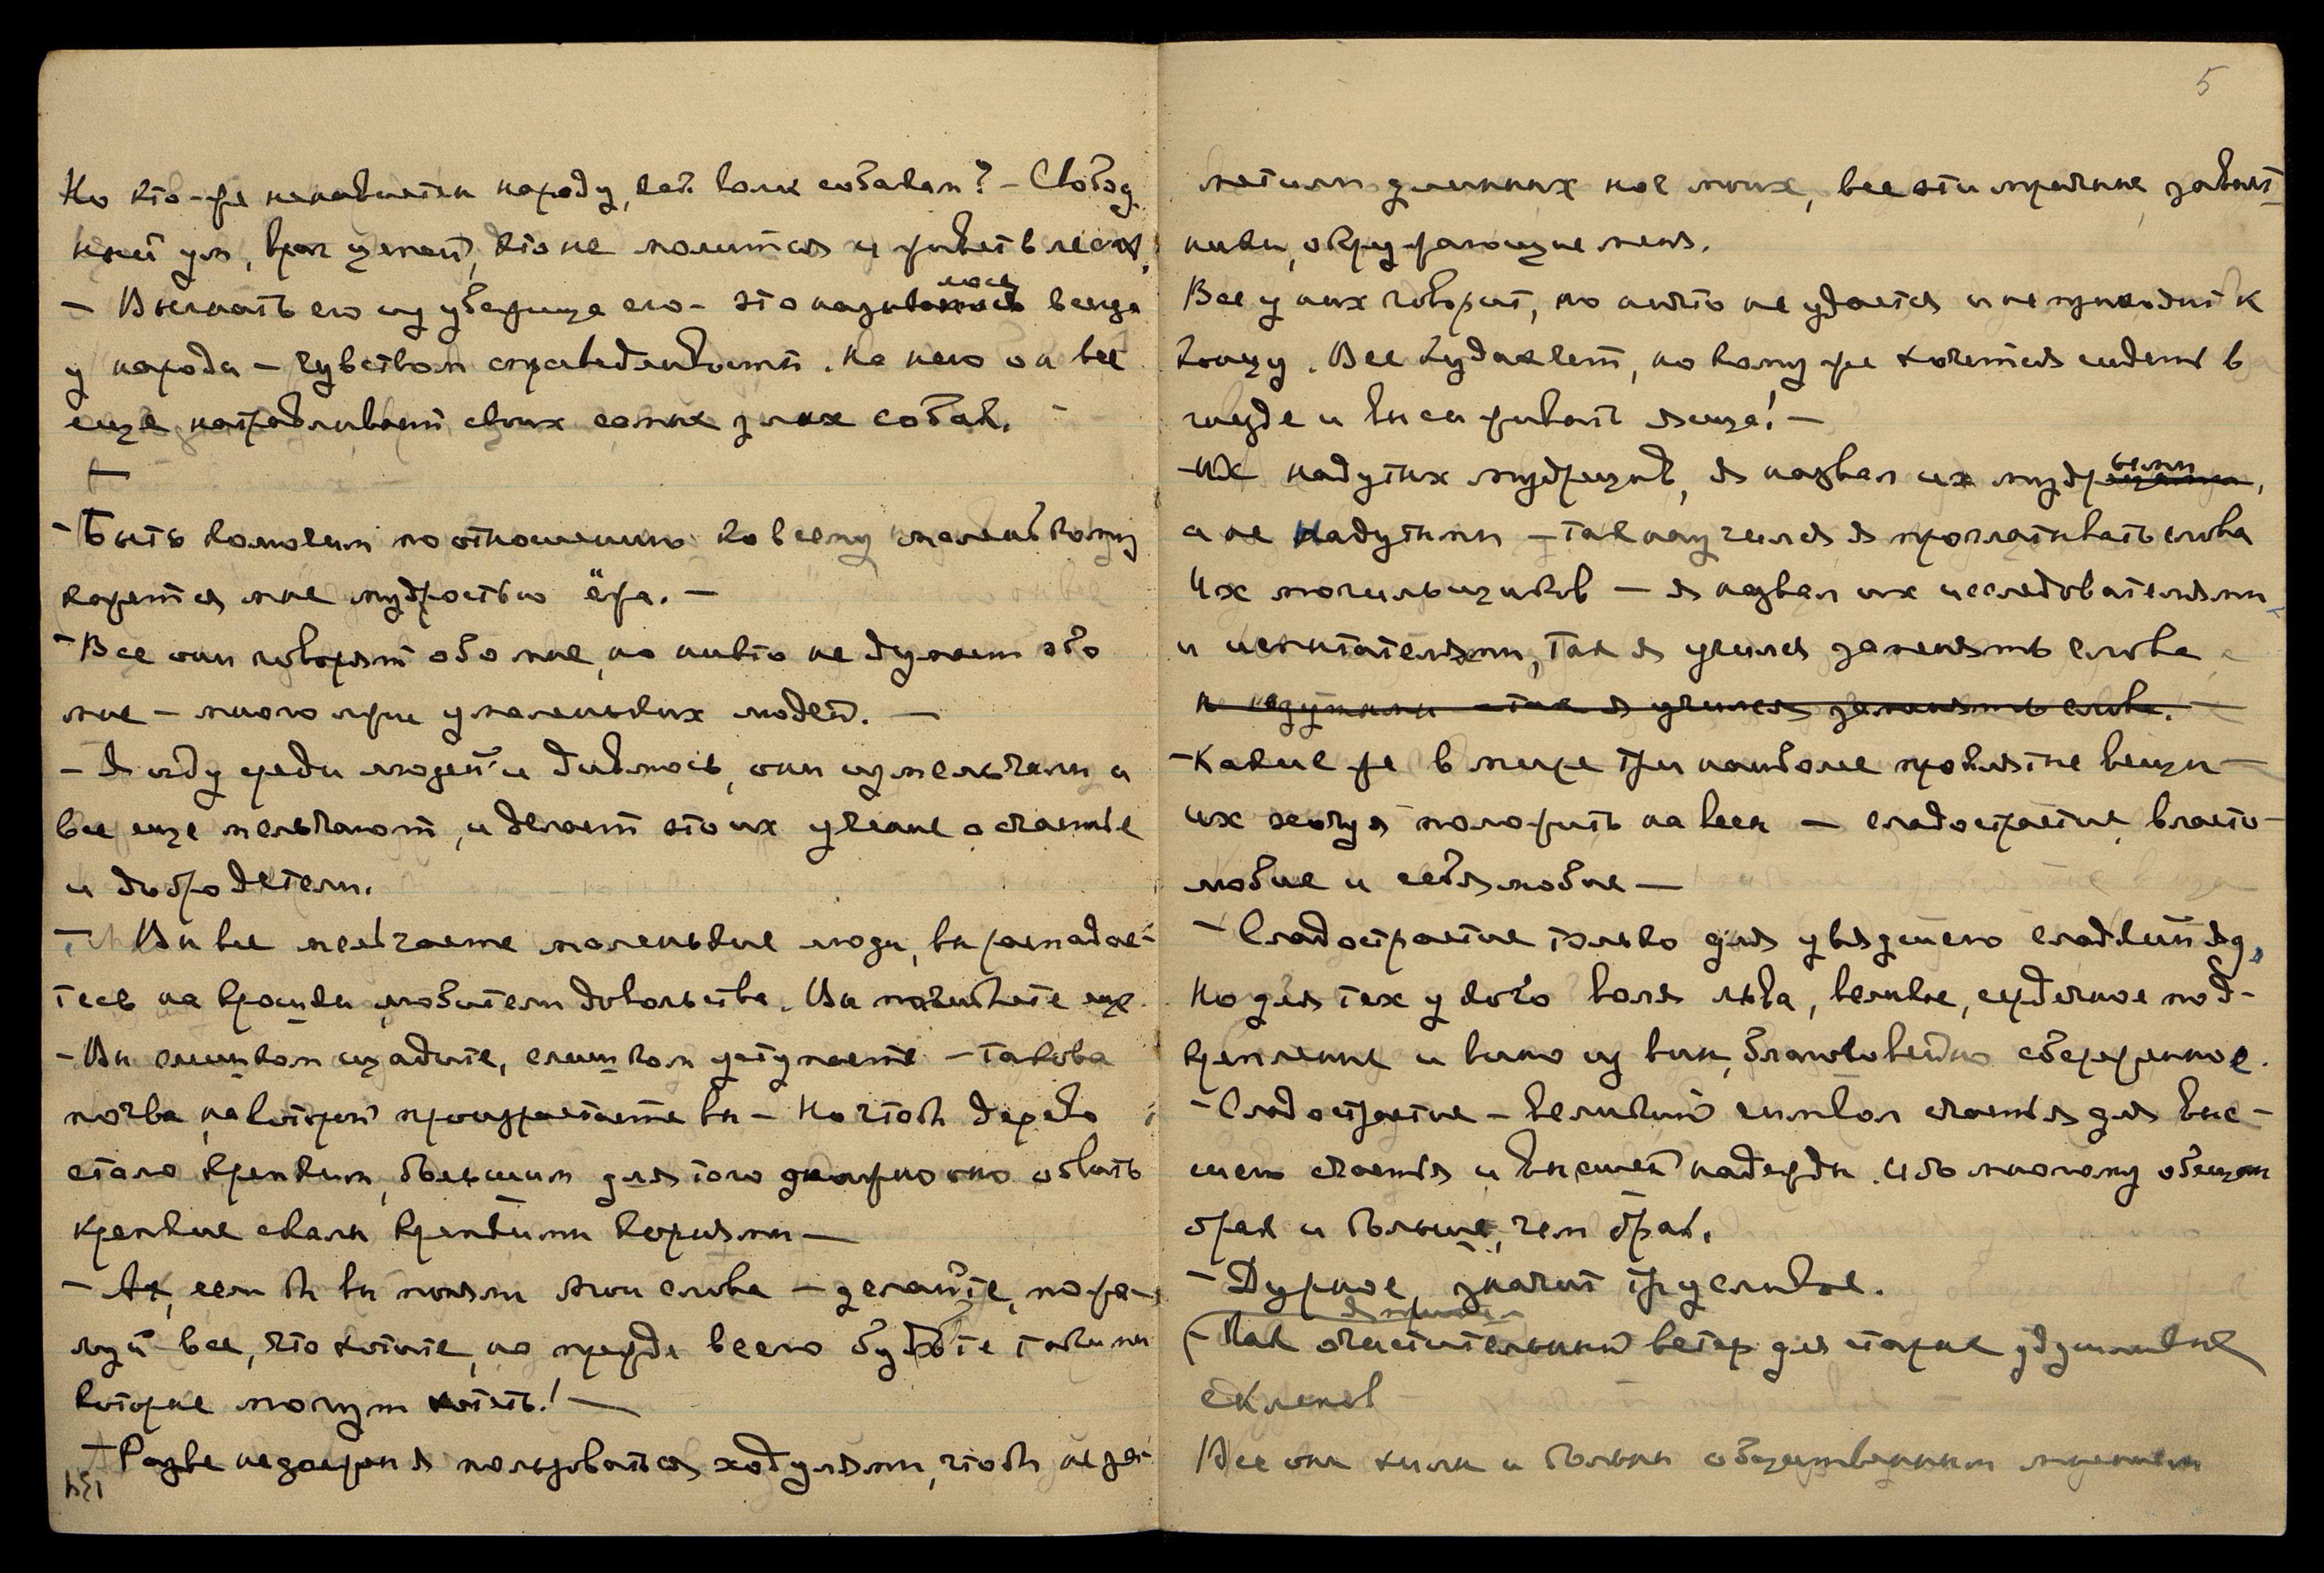 Но кто-же ненавистен народу, как волк собакам? – Свобод
ный ум, враг цепей, кто не молится и живет в лесах,
– Выгнать его из убежища его – это называлось всегда
у народа – чувством справедливости. На него он все
еще натравливает своих самых злых собак. –
– Быть колючим по отношению ко всему маленькому
кажется мне мудростью ёжа. –
– Все они говорят обо мне, но никто не думает обо
мне – много лжи у маленьких людей. –
– Я иду среди людей и дивлюсь, они измельчали и
все еще мельчают, и делает это их учение о счастье
и добродетели.
– Вы все мельчаете маленькие люди, вы распадае-
тесь на крошки, любители довольства. Вы погибнете еще
– Вы слишком щадите, слишком уступаете – такова
почва, на которой произрастаете вы – Но чтоб дерево
стало крепким, большим для того должно оно обвить
крепкие скалы крепкими корнями –
– Ах, если б вы поняли мои слова – делайте, пожа-
луй все, что хотите, но прежде всего будьте такими
которые могут хотеть! –
– Разве не должен я пользоваться ходулями, чтоб не за-
134
5
метили длинных ног моих, все эти мрачные завист-
ники, окружающие меня.
Все у них говорит, но ничто не удается и не приходит к
концу. Все кудахчет, но кому же хочется сидеть в
гнезде и высиживать яйца! –
– Их надутых мудрецов, я назвал их мудрыми,
а не надутыми – так научился я проглатывать слова
Их могильщиков – я назвал их исследователями
и испытателями, так я учился заменять слова
а надутыми – так я учился заменять слова. –
– Какие же в мире три наиболее проклятые вещи –
их хочу я положить на весы – сладострастие, власто-
любие и себялюбие –
– Сладострастие только для увядшего сладкий яд,
Но для тех у кого воля льва, великое, сердечное под-
крепление и вино из вин, благоговейно сбереженное.
– Сладострастие – великий символ счастья для выс-
шего счастья и высшей надежды. Ибо многому обещан
брак и больше, чем брак.
– Дурное, значит трусливое.
– Как очистительный ветер для старых удушливых
склепов
Все они хилы и больны общественным мнением